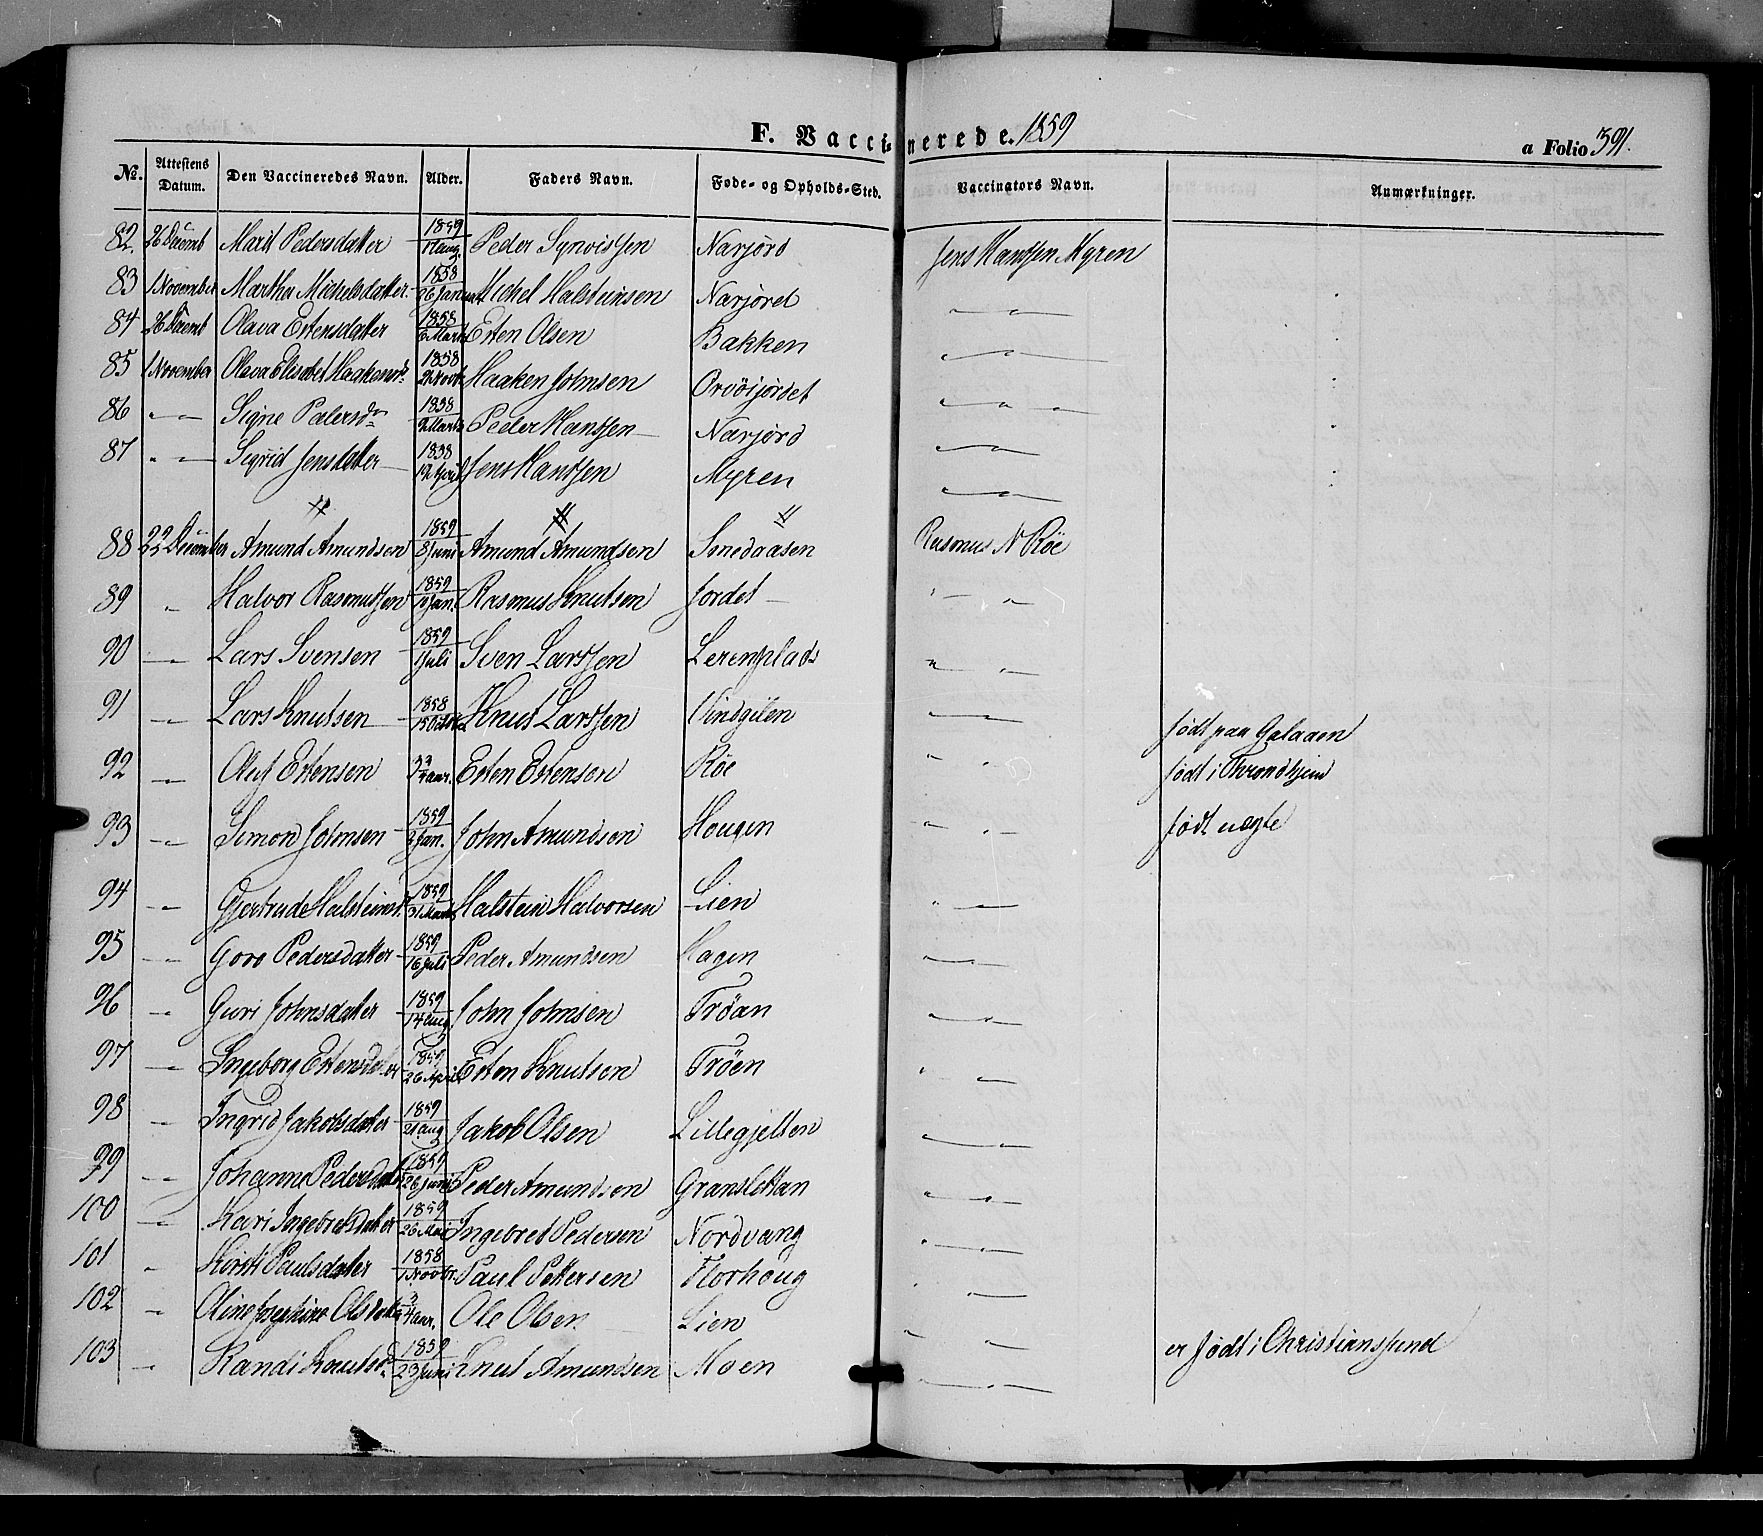 F. Vaccinerede. 1859
a Folio 391.
No. Attestens Datum. Den Vaccineredes Navn. Alder. Faders Navn. Føde- og Opholds-Sted. Vaccinators Navn. Anmærkninger.
82. 26 Decemb Marit Pedersdatter 1859 17 aug. Peder Synvissen Narjord Jens Hanssen Myren
83 1 November Marthe Michelsdatter 1858 26 Januar Michel Halsteinsen Narjordet — " —
84 26 Decemb Olava Estensdatter 1858 6 Marts Esten Olsen Bakken — " —
85 1 November Olava Elisabet Haakensd. 1858 Novb. Haaken Johnsen Orvösjordet — " —
86 " — Signe Pedersdr 1858 2 Marts Peder Hanssen Narjord — " —
87 " — Sigrid Jensdatter 1858 12 April Jens Hanssen Myren — " —
88 22 December Amund Amundsen 1859 8 Juni Amund Amundsen Sonedaasen Rasmus N Röe
89 " Halvor Rasmussen 1859 Jan. Rasmus Knutsen Jordet — " —
90 — " Lars Svensen 1859 1 Juli Sven Larssen Lerenplads " —
91 — " Lars Knutsen 1858 15 Octbr Knut Larssen Vindgilen — " — født paa Galaaen
92 — " Oluf Estensen aar. Esten Estensen Röe " — født i Throndhjem
93 — " Simon Johnsen 1859 2 Jan. John Amundsen Hougen " — født uægte
94 — " Gjertrude Halsteinsd. 1859 31 Marts Halstein Halvorsen Lien " —
95 — " Goro Pedersdatter 1859 16 Juli Peder Amundsen Hagen — " —
96 — " Guri Johnsdatter 1859 14 aug John Johnsen Tröan — " —
97 — " Ingeborg Estensdatter 1859 26 April Esten Knutsen Tröen " —
98 — " Ingrid Jakobsdatter 1859 21 aug Jakob Olsen Lillegjelten — " —
99 — " Johanne Pedersdatter 1859 26 Juni Peder Amundsen Granslettan — " —
100 — " Kari Ingebretsdatter 1859 26 Mai Ingebret Pedersen Nordvang — " —
101 " Kirsti Paulsdatter 1858 1 Novbr. Paul Pettersen Florhoug — " —
102 — " Oline Josephine Olsdatter aar. Ole Olsen Lien " — er født i Christianssund
103 — " Randi Knutsd. 1859 23 Juni Knut Amundsen Moen — " —